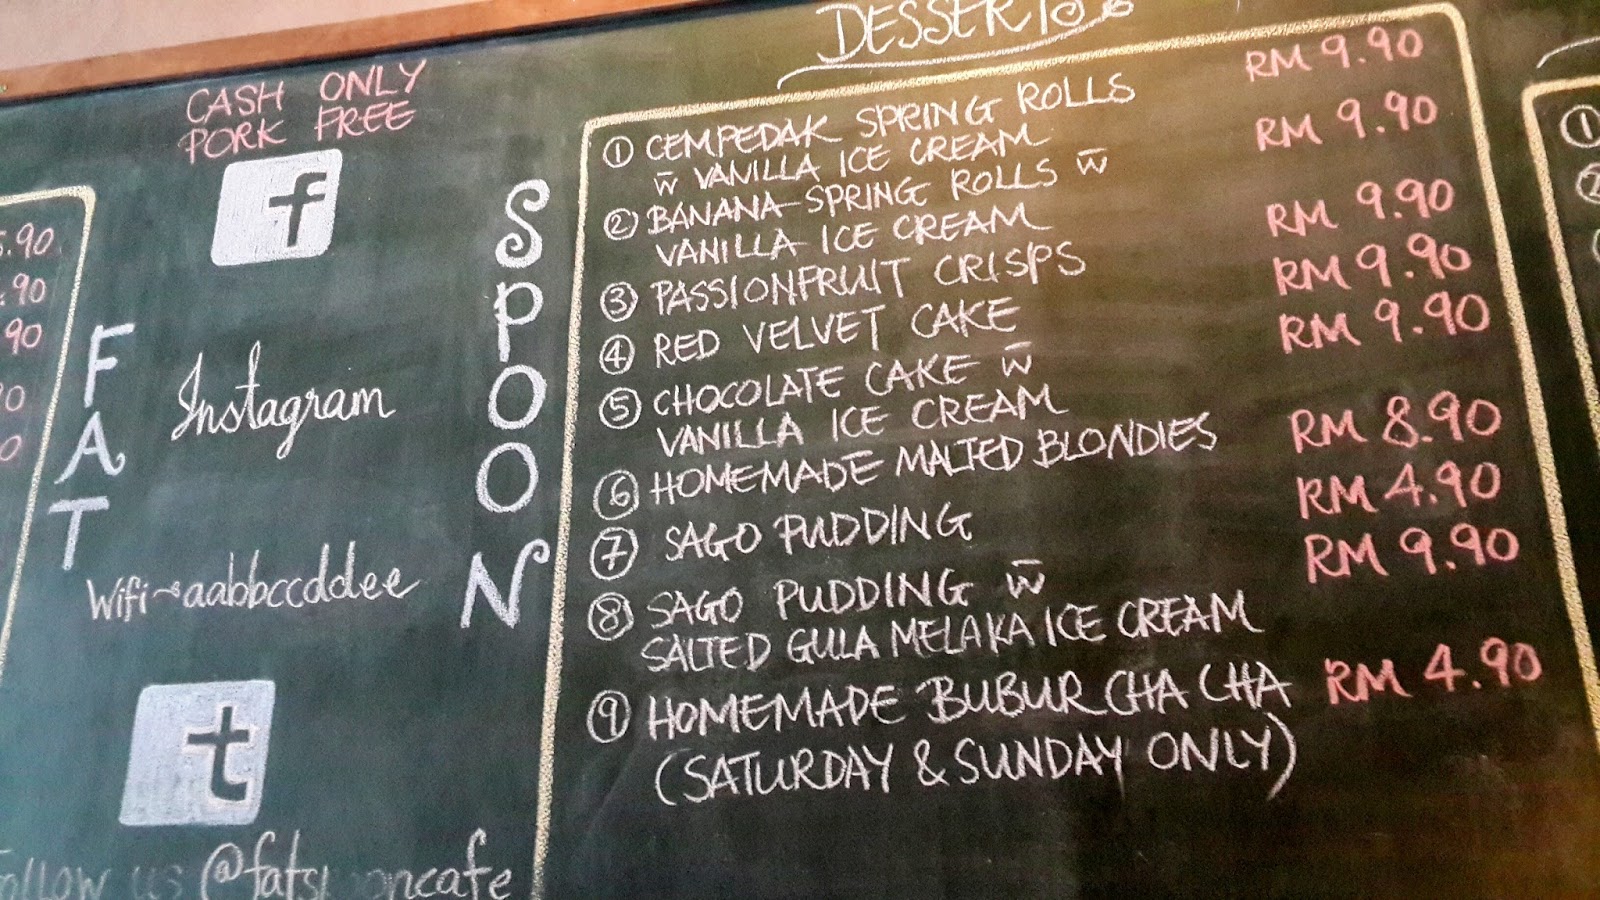 CASH ONLY
PORK FREE
f
FAT
SPOON
Instagram
Wifi~aabbccddee
t
Follow us @fatspooncafe
5.90
.90
90
0
0
DESSERTS
① CEMPEDAK SPRING ROLLS RM 9.90
w̄ VANILLA ICE CREAM
② BANANA SPRING ROLLS w̄ RM 9.90
VANILLA ICE CREAM
③ PASSIONFRUIT CRISPS RM 9.90
④ RED VELVET CAKE RM 9.90
⑤ CHOCOLATE CAKE w̄ RM 9.90
VANILLA ICE CREAM
⑥ HOMEMADE MALTED BLONDIES RM 8.90
⑦ SAGO PUDDING RM 4.90
⑧ SAGO PUDDING w̄ RM 9.90
SALTED GULA MELAKA ICE CREAM
⑨ HOMEMADE BUBUR CHA CHA RM 4.90
(SATURDAY & SUNDAY ONLY)
①
②